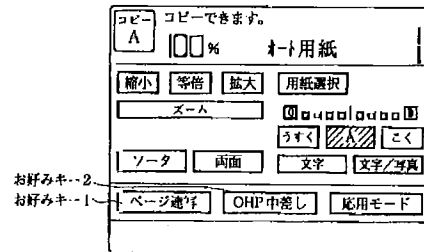 コピー コピーできます。
A 100% オート用紙
縮小 等倍 拡大 用紙選択
ズーム
うすく A こく
ソータ 両面 文字 文字/写真
お好みキー2
お好みキー1 ページ連写 OHP中差し 応用モード